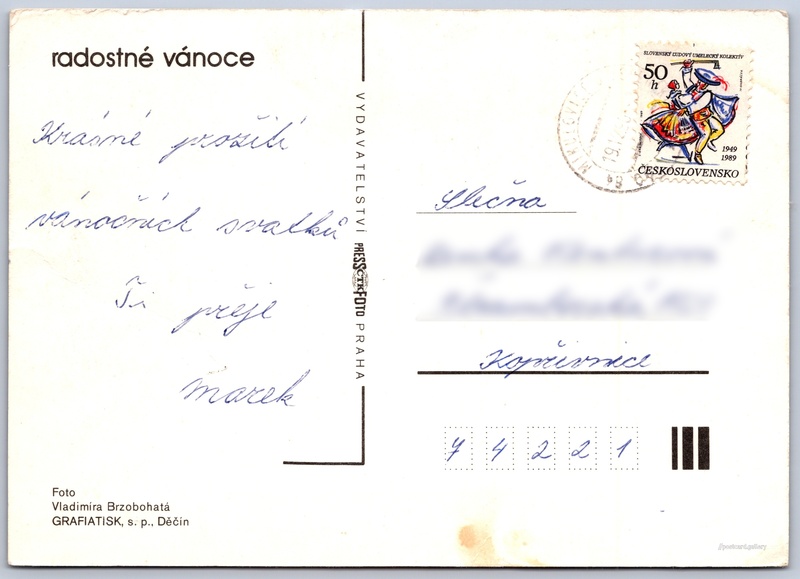 radostné vánoce
Krásné prožití
vánočních svatků
Ti přeje
Marek
VYDAVATELSTVÍ PRESSFOTO PRAHA
ČTK
Foto
Vladimíra Brzobohatá
GRAFIATISK, s. p., Děčín
SLOVENSKÝ ĽUDOVÝ UMELECKÝ KOLEKTÍV
50
h
1949
1989
ČESKOSLOVENSKO
Slečna
Kopřivnice
7 4 2 2 1
//postcard.gallery